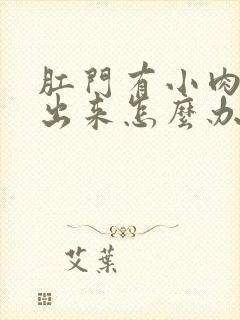 肛門有小肉
出来怎麼办
艾葉